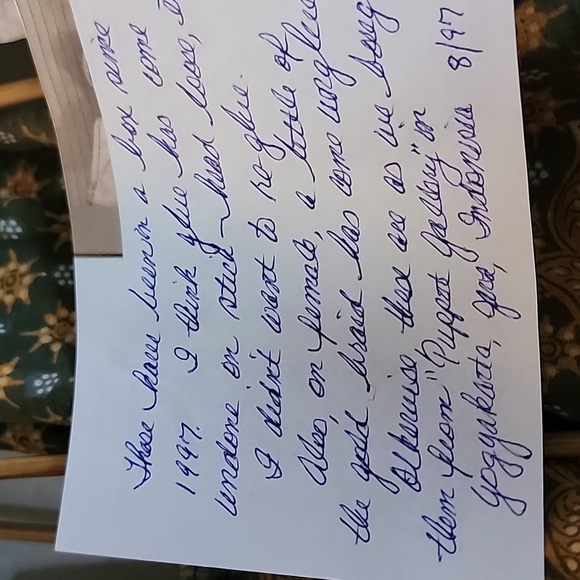 These have been in a box since
1997. I think glue has come
undone on stick - head loose,
I didn't want to re-glue.
Also, on female, a little of
the gold braid has come unglue
Otherwise these are as we boug
them from "Puppet Gallery" in
Yogyakarta, Java, Indonesia 8/97